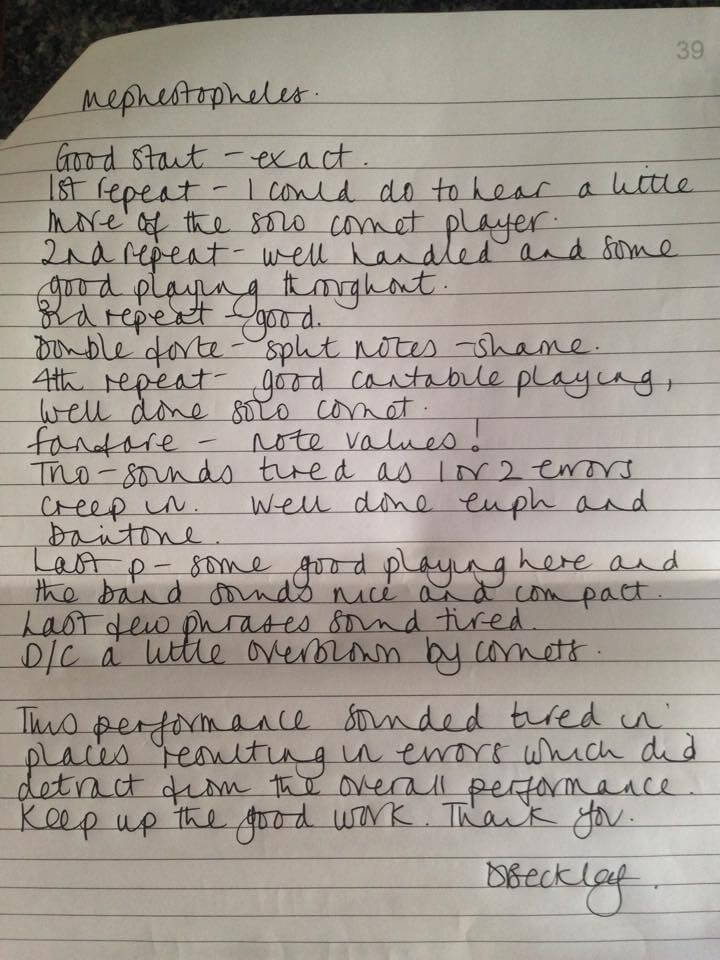 39
Mephestopheles.
Good start - exact.
1st repeat - I could do to hear a little
more of the solo cornet player.
2nd repeat - well handled and some
good playing throughout.
3rd repeat - good.
Double forte - split notes - shame.
4th repeat - good cantabile playing,
well done solo cornet.
fanfare - note values!
Trio - sounds tired as 1 or 2 errors
creep in. Well done euph and
baritone.
Last p - some good playing here and
the band sounds nice and compact.
Last few phrases sound tired.
D/C a little overblown by cornets.
This performance sounded tired in
places resulting in errors which did
detract from the overall performance.
Keep up the good work. Thank you.
DBeckley.